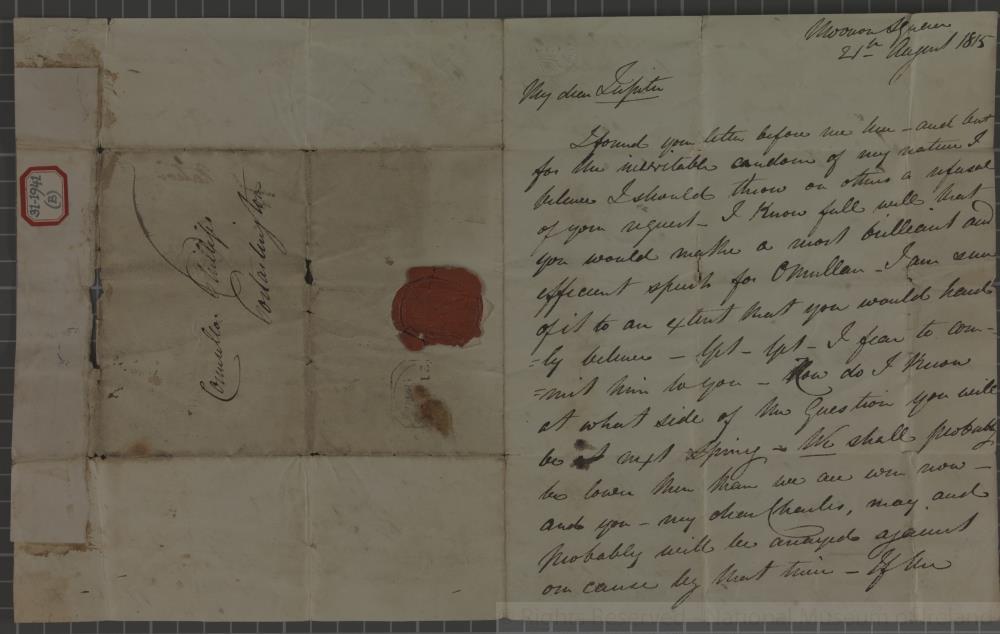 31-1941
(B)
Counsellor Phillips
Portarlington
Merrion Square
21st August 1815
My dear Jupiter
I found your letter before me here – and but
for the inevitable candour of my nature I
believe I should throw on others a refusal
of your request – I know full well that
you would make a most brilliant and
efficient speech for O'Mullan – I am sure
of it to an extent that you would hard
=ly believe – Yet – Yet – I fear to com-
=mit him to you – How do I know
at what side of the Question you will
be at next Spring – We shall probably
be lower then than we are even now –
and you – my dear Charles, may and
probably will be arrayed against
our cause by that time – If the
© Rights Reserved National Museum of Ireland